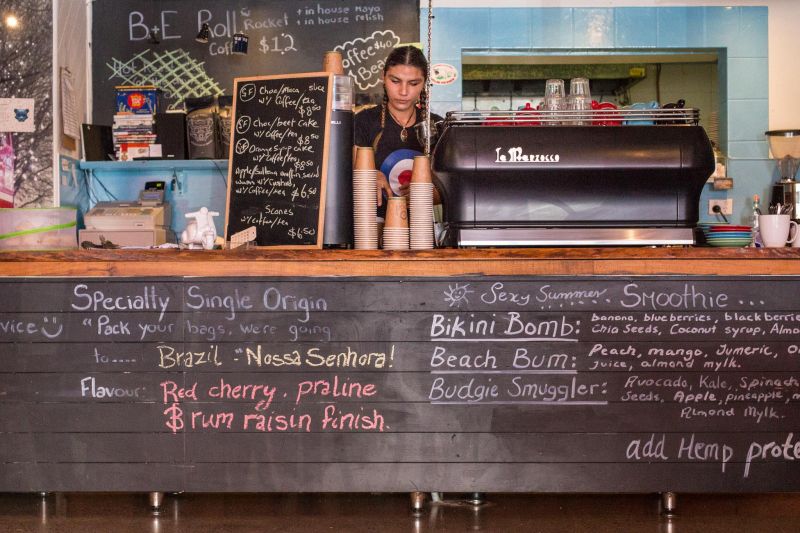 B+E Roll
Rocket
+ in house Mayo
+ in house relish
Coffee
$12
Coffee
Choc/maca slice
w/ Coffee/tea
$8.50
Choc/beet cake
w/ Coffee/tea
$8.50
Orange syrup cake
w/ Coffee/tea $8.50
Apple/Sultana muffin served
warm w/ Custard
w/ Coffee/tea $6.50
Scones
w/ Coffee/tea
$6.50
La Marzocco
Specialty Single Origin
vice "Pack your bags, we're going
to.... Brazil - "Nossa Senhora!
Flavour: Red cherry, praline
& rum raisin finish.
Sexy Summer Smoothie ...
Bikini Bomb: banana, blueberries, blackberries
Chia Seeds, Coconut syrup, Almo
Beach Bum: Peach, mango, Tumeric, O
juice, almond mylk.
Budgie Smuggler: Avocado, Kale, Spinach
Seeds, Apple, pineapple, m
Almond Mylk.
add Hemp prote